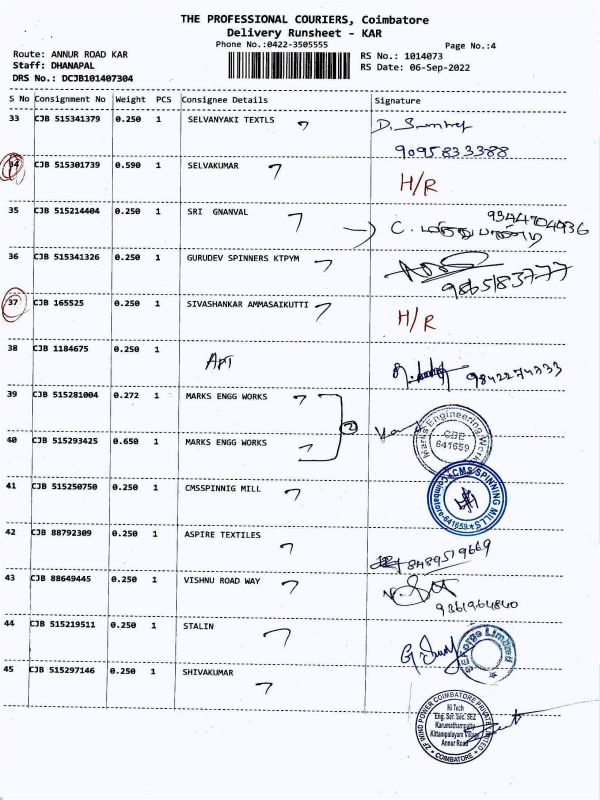 THE PROFESSIONAL COURIERS, Coimbatore
Delivery Runsheet - KAR
Phone No.:0422-3505555
Page No.:4
Route: ANNUR ROAD KAR
RS No.: 1014073
Staff: DHANAPAL
RS Date: 06-Sep-2022
DRS No.: DCJB101407304
S No Consignment No Weight PCS Consignee Details Signature
33 CJB 515341379 0.250 1 SELVANYAKI TEXTLS
9095833388
34 CJB 515301739 0.590 1 SELVAKUMAR H/R
35 CJB 515214404 0.250 1 SRI GNANVAL 9344704936
C.
36 CJB 515341326 0.250 1 GURUDEV SPINNERS KTPYM
9865183777
37 CJB 165525 0.250 1 SIVASHANKAR AMMASAIKUTTI H/R
38 CJB 1184675 0.250 1 9842274333
39 CJB 515281004 0.272 1 MARKS ENGG WORKS
2
Marks Engineering Works
CBE
641659
40 CJB 515293425 0.650 1 MARKS ENGG WORKS
41 CJB 515250750 0.250 1 CMSSPINNIG MILL
CMS SPINNING MILLS
Coimbatore-641659
42 CJB 88792309 0.250 1 ASPIRE TEXTILES
8489519669
43 CJB 88649445 0.250 1 VISHNU ROAD WAY
9361964840
44 CJB 515219511 0.250 1 STALIN
Limited
45 CJB 515297146 0.250 1 SHIVAKUMAR
ZF WIND POWER COIMBATORE PRIVATE LIMITED
Hi Tech
Eng. Ser. Sec. SEZ
Karumathampatty
Kittampalayam Village
Annur Road
COIMBATORE